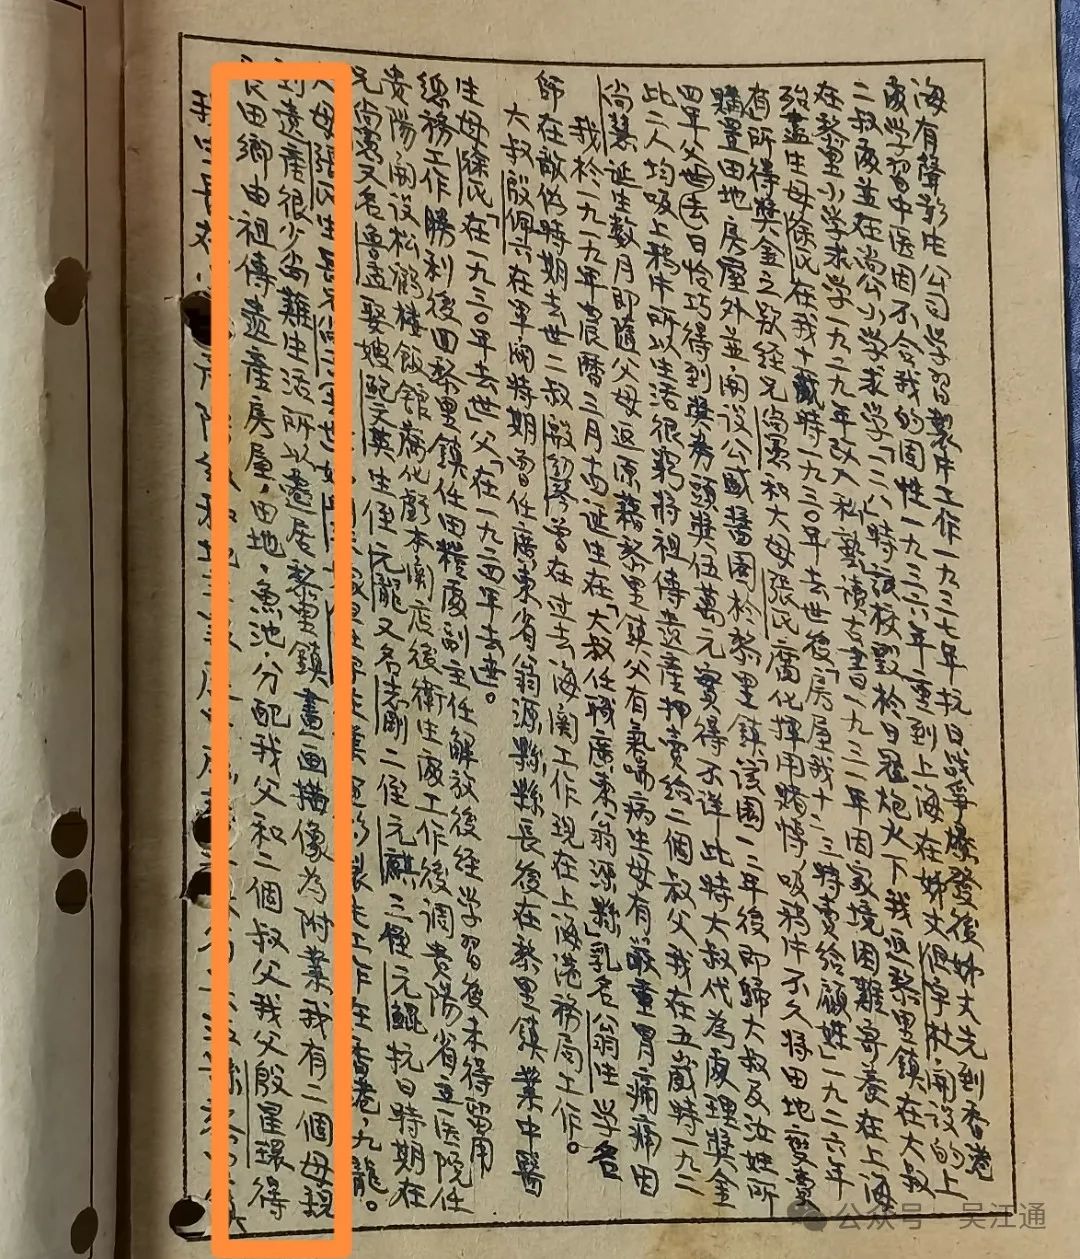 良田鄉由祖傳遺產房屋,田地、魚池分配我父和二個叔父我父殷星環得
到遺產很少尚難生活所以遷居黎里鎮畫画描像為附業我有二個母親
母張氏生長兄尚 工作在香港,九龍。
兄尚賓又名魯孟娶嫂鮑文英生侄元龍又名志剛二侄元麒三侄元鯤抗日時期在
貴陽開設松鶴樓飯館腐化虧本関店後衛生處工作後調貴陽省立医院任
總務工作勝利後回黎里鎮任田糧處副主任解放後経学習後未得留用
生母徐氏「在一九三〇年去世」父「在一九二四年去世。
大叔殷佩六在軍閥時期曾任廣東省翁源縣縣長後在黎里鎮業中醫
師在敵偽時期去世二叔殷幼琴曾在过去海関工作現在上海港務局工作。
我於一九一九年農曆三月尚誕生在「大叔任職廣東翁源縣」乳名翁生学名
尚慧誕生数月即隨父母返原籍黎里鎮父有氣喘病生母有嚴重胃痛病因
此二人均吸上鴉片所以生活很窮將祖傳遺產押賣给二個叔父我在五歲時一九二
四年父世去日恰巧得到獎券頭獎伍萬元實得不详此時大叔代為處理獎金
購置田地房屋外並開设公盛醬園於黎里鎮「该園一二年後即歸大叔及汝姓所
有」所得獎金之款経兄尚賓和大母張氏腐化揮用賭博,吸鴉片不久將田地变賣
殆盡生母徐氏在我十歲時一九三〇年去世後「房屋我十二三時賣给顧姓」一九二六年
在黎里小学求学一九二九年改入私塾讀古書一九三一年因家境困難寄養在上海
二叔處並在滬公小学求学「一二八」時该校毀於日寇炮火下我返黎里鎮在大叔
處学習中医因不合我的個性一九三六年重到上海在姊丈 開设的上
海有聲影片公司学習製片工作一九三七年抗日战爭爆發後姊丈先到香港
公众号 吴江通